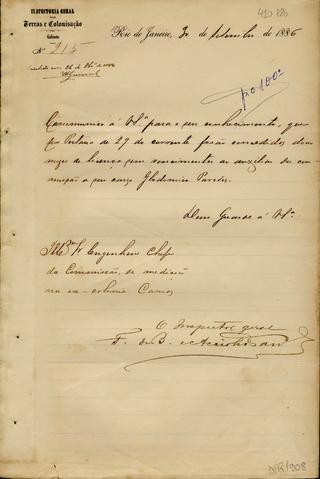 INSPECTORIA GERAL
DAS
Terras e Colonisação
Gabinete
Nº 215
Rio de Janeiro, 30 de Setembro de 1886
410 886
pº 100º
Communico á V. Sª para o seu conhecimento, que
por Portaria de 27 do corrente forão concedidos dous
mezes de licença sem vencimentos ao auxiliar da com-
missão a seu cargo Glodomiro Paredes.
Deus Guarde á V. Sª
Illmº Sr. Engenheiro Chefe
da Commissão de medição
na ex-colonia Caxias
O Inspector geral
F. de B. e Accioli de
N/R/908